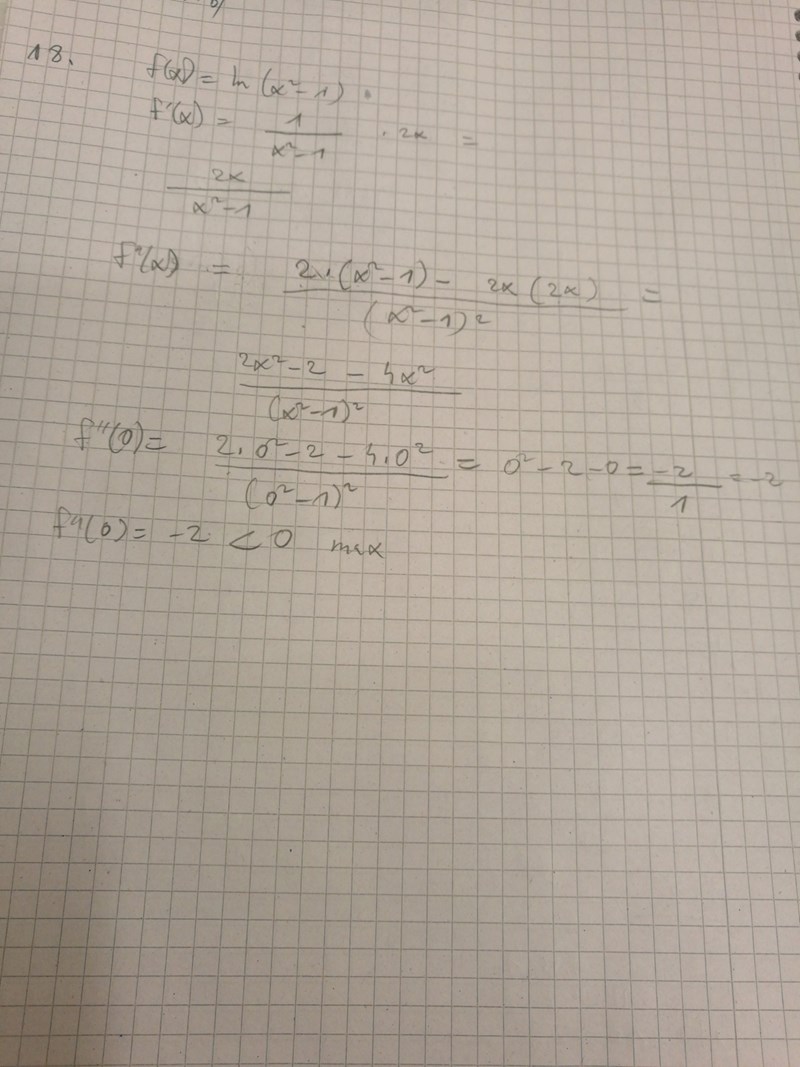 18.
f(x) = ln (x²-1).
f'(x) = 1/(x²-1) · 2x =
2x/(x²-1)
f''(x) = (2·(x²-1) - 2x(2x))/(x²-1)² =
(2x²-2 - 4x²)/(x²-1)²
f''(0) = (2·0²-2 - 4·0²)/(0²-1)² = 0²-2-0 = -2/1 = -2
f''(0) = -2 < 0 max